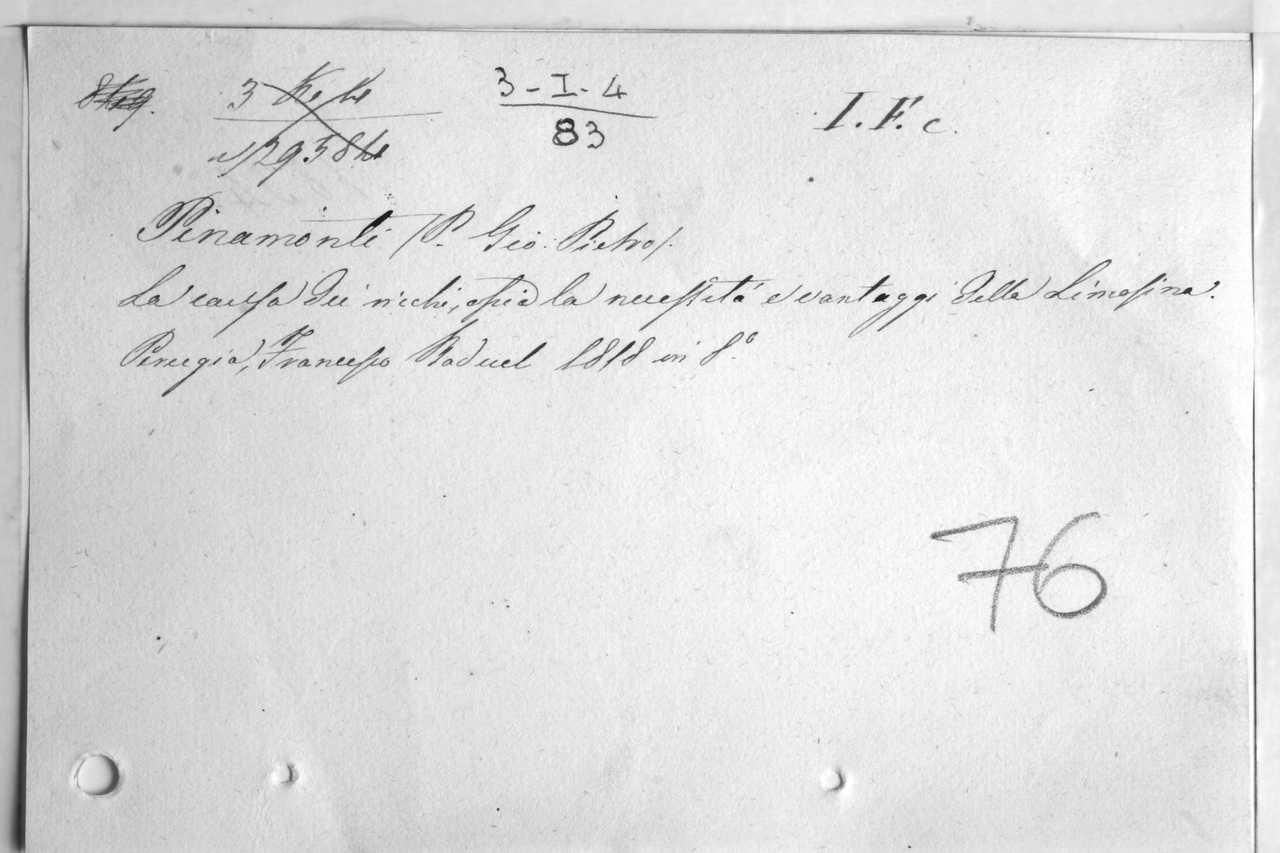 3-I-4
83
I. F. c.
Pinamonti (P. Gio. Pietro).
La causa dei ricchi, ossia la necessità e vantaggi della Limosina.
Perugia, Francesco Baduel 1818 in 8.°
76